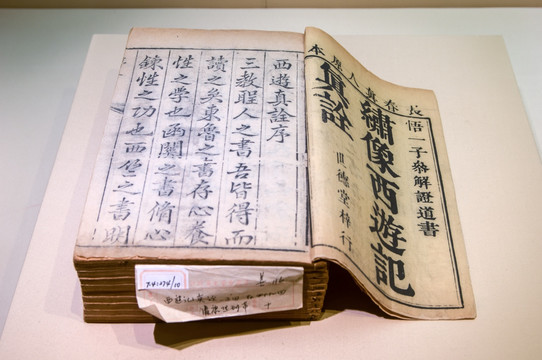 長春真人原本
悟一子參解證道書
繡像西遊記
真詮
世德堂梓行
西遊真詮序
三教聖人之書吾皆得而
讀之矣東魯之書存心養
性之學也函關之書脩心
鍊性之功也西竺之書明